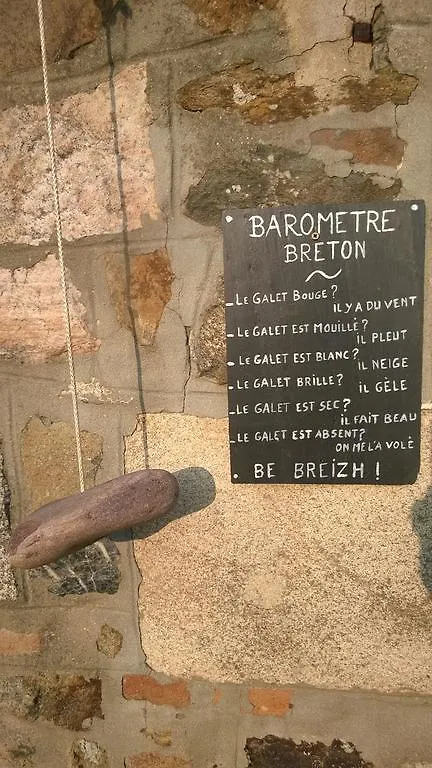 BAROMETRE
BRETON
~
- LE GALET BOUGE?
IL Y A DU VENT
- LE GALET EST MOUILLÉ?
IL PLEUT
- LE GALET EST BLANC?
IL NEIGE
- LE GALET BRILLE?
IL GÈLE
- LE GALET EST SEC?
IL FAIT BEAU
- LE GALET EST ABSENT?
ON ME L'A VOLÉ
BE BREIZH!